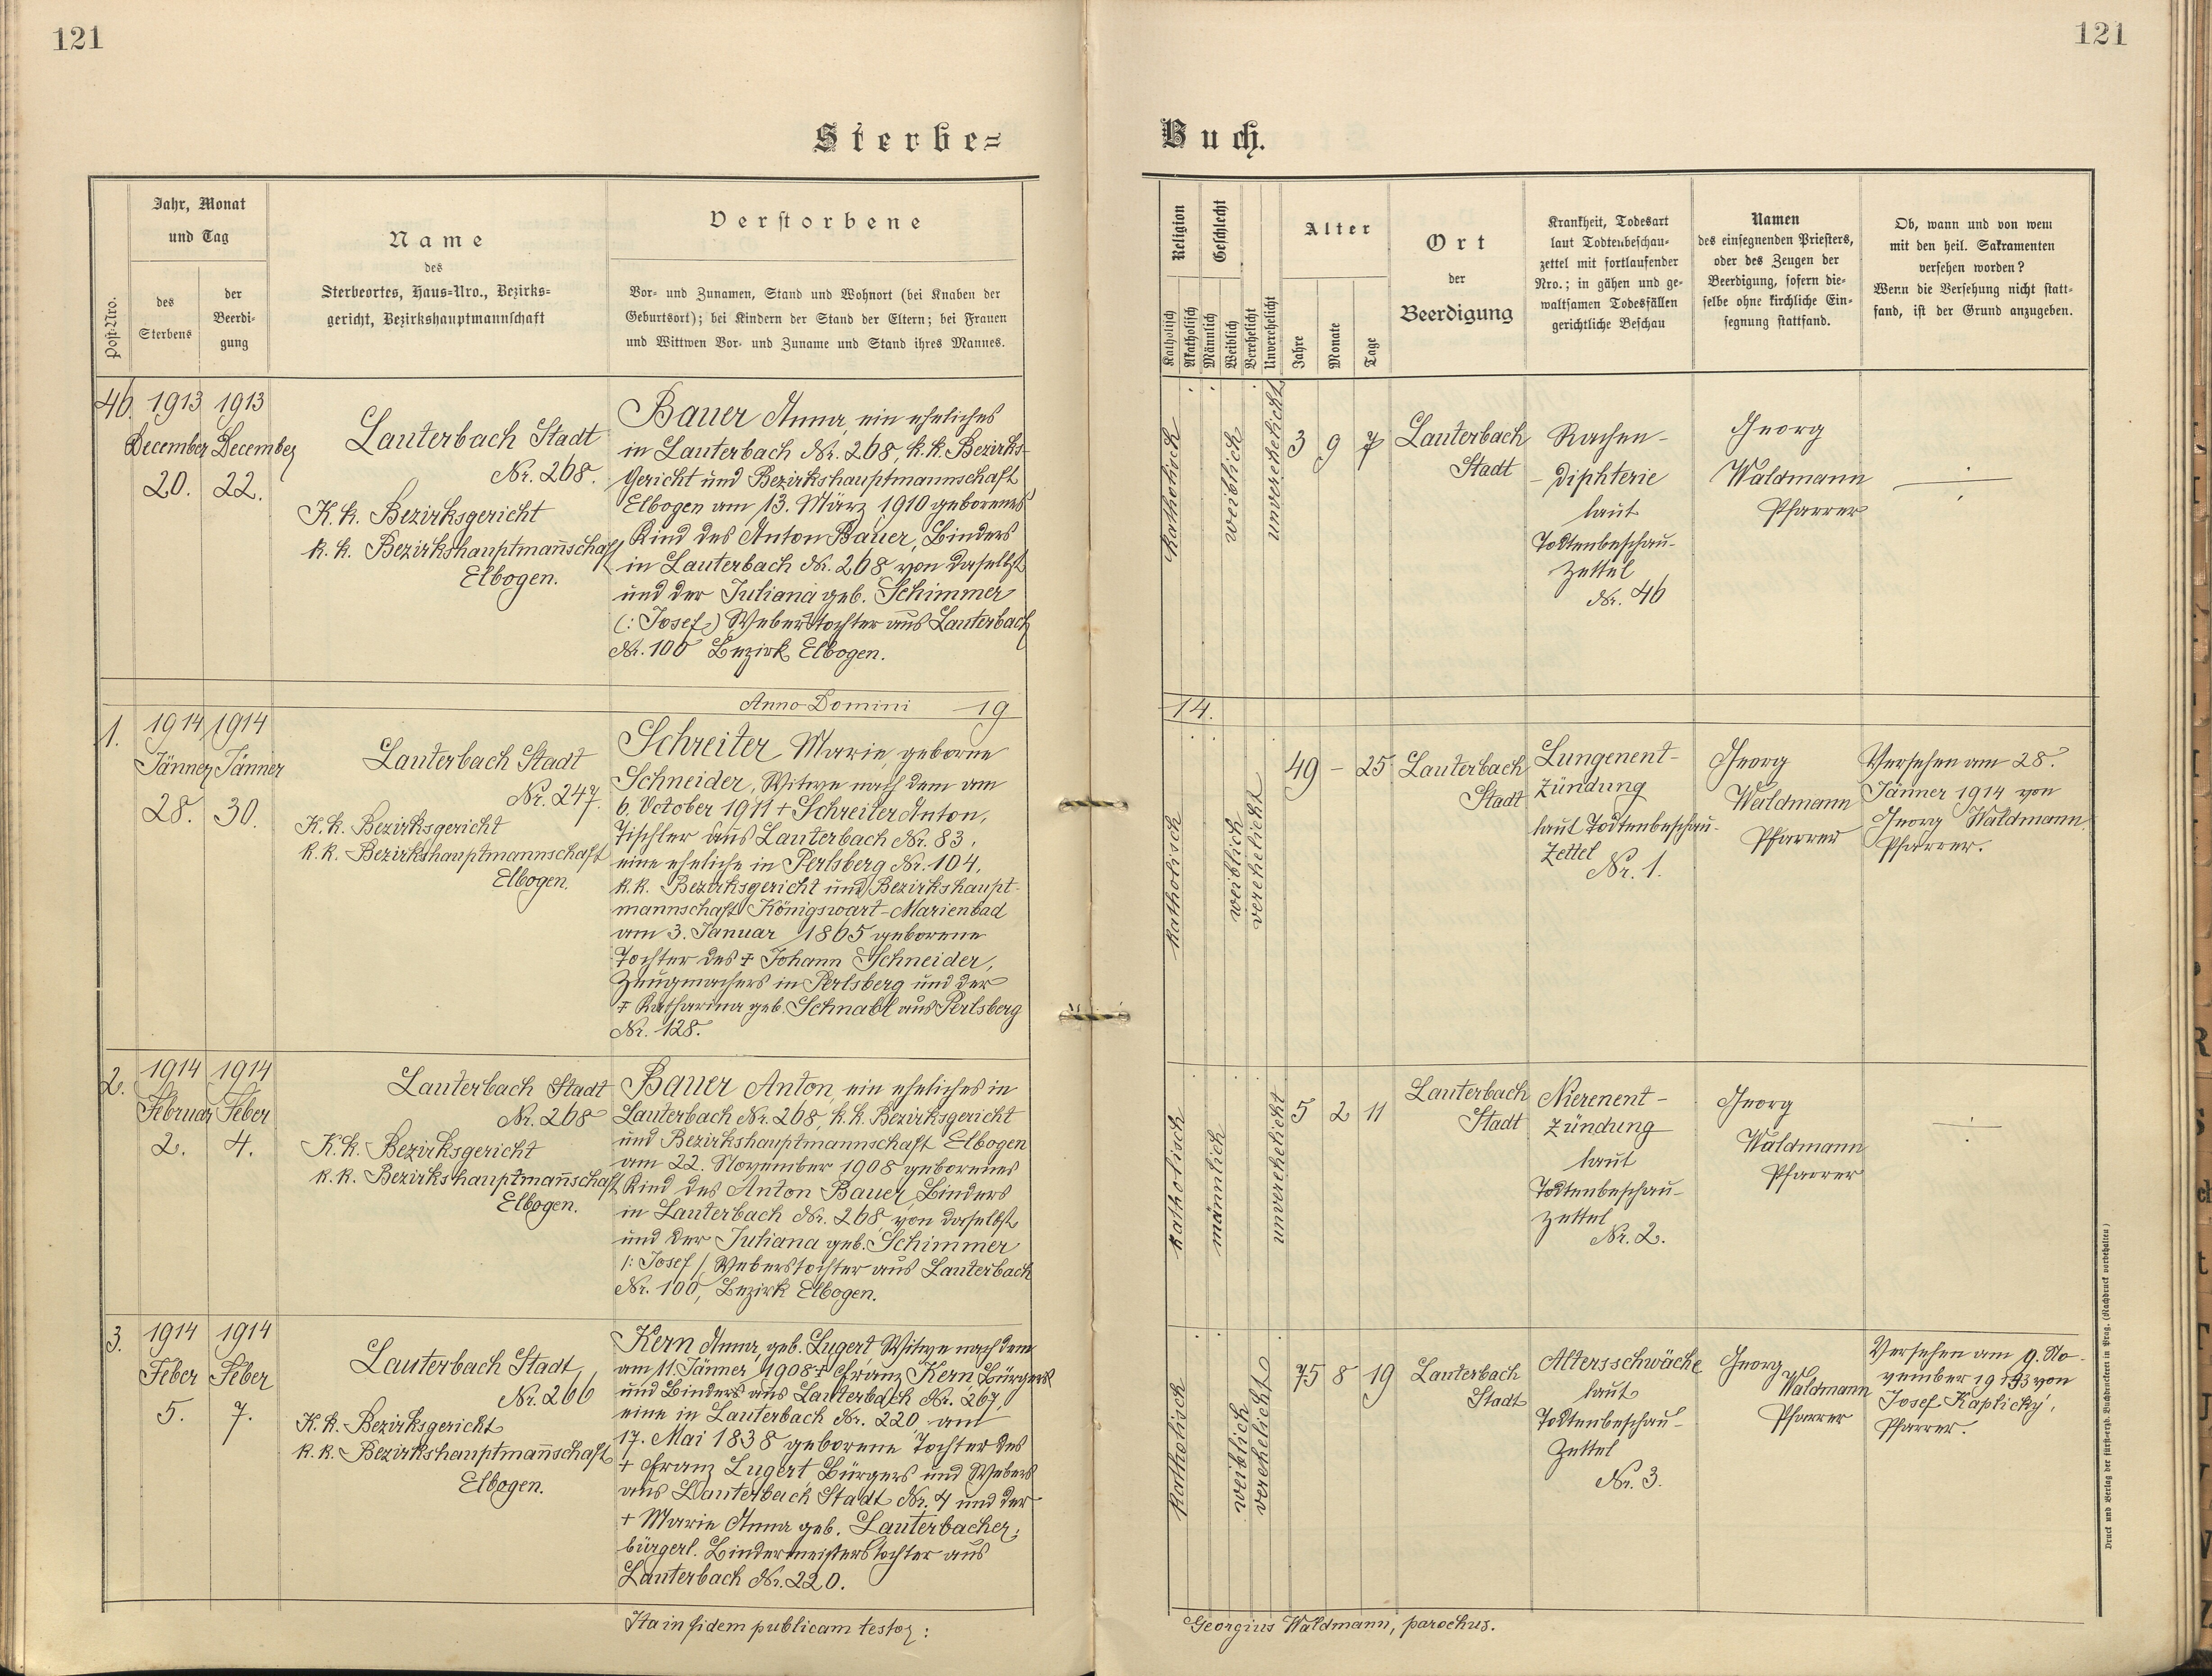 121
121
Sterbe=
Buch.
Post-Nro.
Jahr, Monat
und Tag
des
Sterbens
der
Beerdi-
gung
Name
des
Sterbeortes, Haus-Nro., Bezirks-
gericht, Bezirkshauptmannschaft
Verstorbene
Vor- und Zunamen, Stand und Wohnort (bei Knaben der
Geburtsort); bei Kindern der Stand der Eltern; bei Frauen
und Wittwen Vor- und Zuname und Stand ihres Mannes.
Religion
Katholisch
Akatholisch
Geschlecht
Männlich
Weiblich
Verehelicht
Unverehelicht
Alter
Jahre
Monate
Tage
Ort
der
Beerdigung
Krankheit, Todesart
laut Todtenbeschau-
zettel mit fortlaufender
Nro.; in gähen und ge-
waltsamen Todesfällen
gerichtliche Beschau
Namen
des einsegnenden Priesters,
oder des Zeugen der
Beerdigung, sofern die-
selbe ohne kirchliche Ein-
segnung stattfand.
Ob, wann und von wem
mit den heil. Sakramenten
versehen worden?
Wenn die Versehung nicht statt-
fand, ist der Grund anzugeben.
46.
1913
December
20.
1913
December
22.
Lauterbach Stadt
Nr. 268.
K.k. Bezirksgericht
k.k. Bezirkshauptmannschaft
Elbogen.
Bauer Anna, ein eheliches
in Lauterbach Nr. 268 k.k. Bezirks-
Gericht und Bezirkshauptmannschaft
Elbogen am 13. März 1910 geborenes
Kind des Anton Bauer, Binders
in Lauterbach Nr. 268 von daselbst
und der Juliana geb. Schimmer
(: Josef :) Weberstochter aus Lauterbach
Nr. 100 Bezirk Elbogen.
katholisch
weiblich
unverehelicht
3
9
7
Lauterbach
Stadt
Rachen-
Diphterie
laut
Todtenbeschau-
Zettel
Nr. 46
Georg
Waldmann
Pfarrer
Anno Domini 19
14.
1.
1914
Jänner
28.
1914
Jänner
30.
Lauterbach Stadt
Nr. 247.
K.k. Bezirksgericht
k.k. Bezirkshauptmannschaft
Elbogen.
Schreiter Marie, geborne
Schneider, Witwe nach dem am
6. October 1911 + Schreiter Anton,
Tischler aus Lauterbach Nr. 83,
eine eheliche in Perlsberg Nr. 104,
k.k. Bezirksgericht und Bezirkshaupt-
mannschaft Königswart-Marienbad
am 3. Januar 1865 geborene
Tochter des + Johann Schneider,
Zeugmachers in Perlsberg und der
+ Katharina geb. Schnabl aus Perlsberg
Nr. 128.
katholisch
weiblich
verehelicht
49
-
25
Lauterbach
Stadt
Lungenent-
zündung
laut Todtenbeschau-
Zettel
Nr. 1.
Georg
Waldmann
Pfarrer
Versehen am 28.
Jänner 1914 von
Georg Waldmann
Pfarrer.
2.
1914
Februar
2.
1914
Feber
4.
Lauterbach Stadt
Nr. 268
K.k. Bezirksgericht
k.k. Bezirkshauptmannschaft
Elbogen.
Bauer Anton, ein eheliches in
Lauterbach Nr. 268, k.k. Bezirksgericht
und Bezirkshauptmannschaft Elbogen
am 22. November 1908 geborenes
Kind des Anton Bauer, Binders
in Lauterbach Nr. 268, von daselbst
und der Juliana geb. Schimmer
/: Josef / Weberstochter aus Lauterbach
Nr. 100, Bezirk Elbogen.
katholisch
männlich
unverehelicht
5
2
11
Lauterbach
Stadt
Nierenent-
zündung
laut
Todtenbeschau-
zettel
Nr. 2.
Georg
Waldmann
Pfarrer
3.
1914
Feber
5.
1914
Feber
7.
Lauterbach Stadt
Nr. 266
K.k. Bezirksgericht
k.k. Bezirkshauptmannschaft
Elbogen.
Kern Anna, geb. Lugert Witwe nach dem
am 11. Jänner 1908 + Franz Kern Bürgers
und Binders aus Lauterbach Nr. 267,
eine in Lauterbach Nr. 220 am
17. Mai 1838 geborene Tochter des
+ Franz Lugert Bürgers und Webers
aus Lauterbach Stadt Nr. 4 und der
+ Marie Anna geb. Lauterbacher,
bürgerl. Bindermeisterstochter aus
Lauterbach Nr. 220.
katholisch
weiblich
verehelicht
75
8
19
Lauterbach
Stadt
Altersschwäche
laut
Todtenbeschau-
Zettel
Nr. 3.
Georg
Waldmann
Pfarrer
Versehen am 9. No-
vember 1913 von
Josef Kaplický,
Pfarrer.
Ita in fidem publicam testor:
Georgius Waldmann, parochus.
Druck und Verlag der fürst-erzb. Buchdruckerei in Prag. (Nachdruck vorbehalten.)